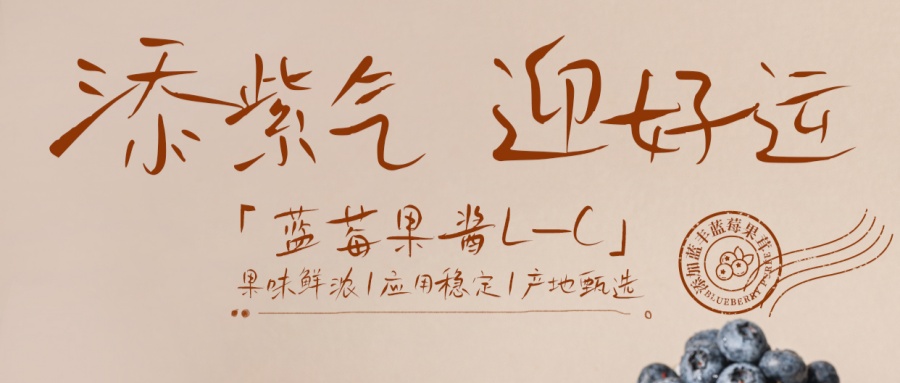 添紫气 迎好运
「蓝莓果酱L-C」
果味鲜浓|应用稳定|产地甄选
添加蓝丰蓝莓果茸
BLUEBERRY PUREE